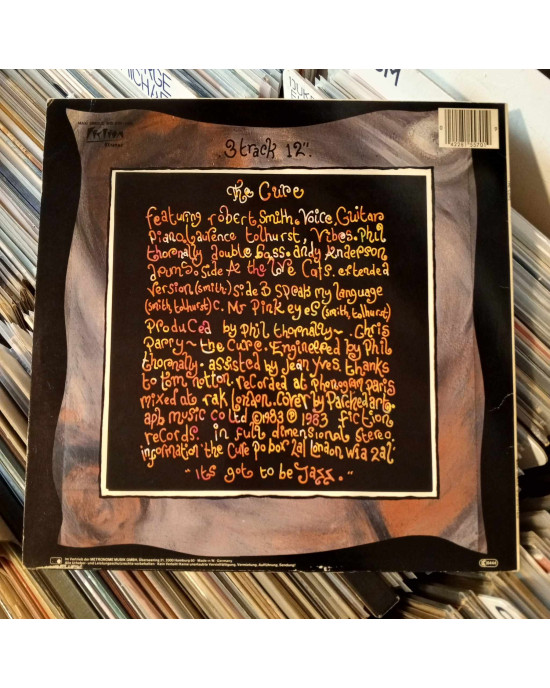 3 track 12".
The Cure
featuring robert Smith. Voice, Guitar
piano, Laurence tolhurst, Vibes. Phil
thornally double bass. andy Anderson
drums. side A: the love Cats. extended
version (smith) side B speak my language
(smith, tolhurst) c. Mr Pink eyes (smith, tolhurst)
Produced by phil thornally~. Chris
Parry~ the cure. Engineered by Phil
thornally. assisted by jean yves. thanks
to tom nolton. recorded at phonogram paris
mixed ato rak london. cover by Parched art.
aph music co ltd ©1983 ℗ 1983 fiction
records. in full dimensional stereo.
information the Cure po box 2al london. w1a 2al.
~ "its got to be Jazz."~
Im Vertrieb der METRONOME MUSIK GMBH, Überseering 21, 2000 Hamburg 60 · Made in W. Germany